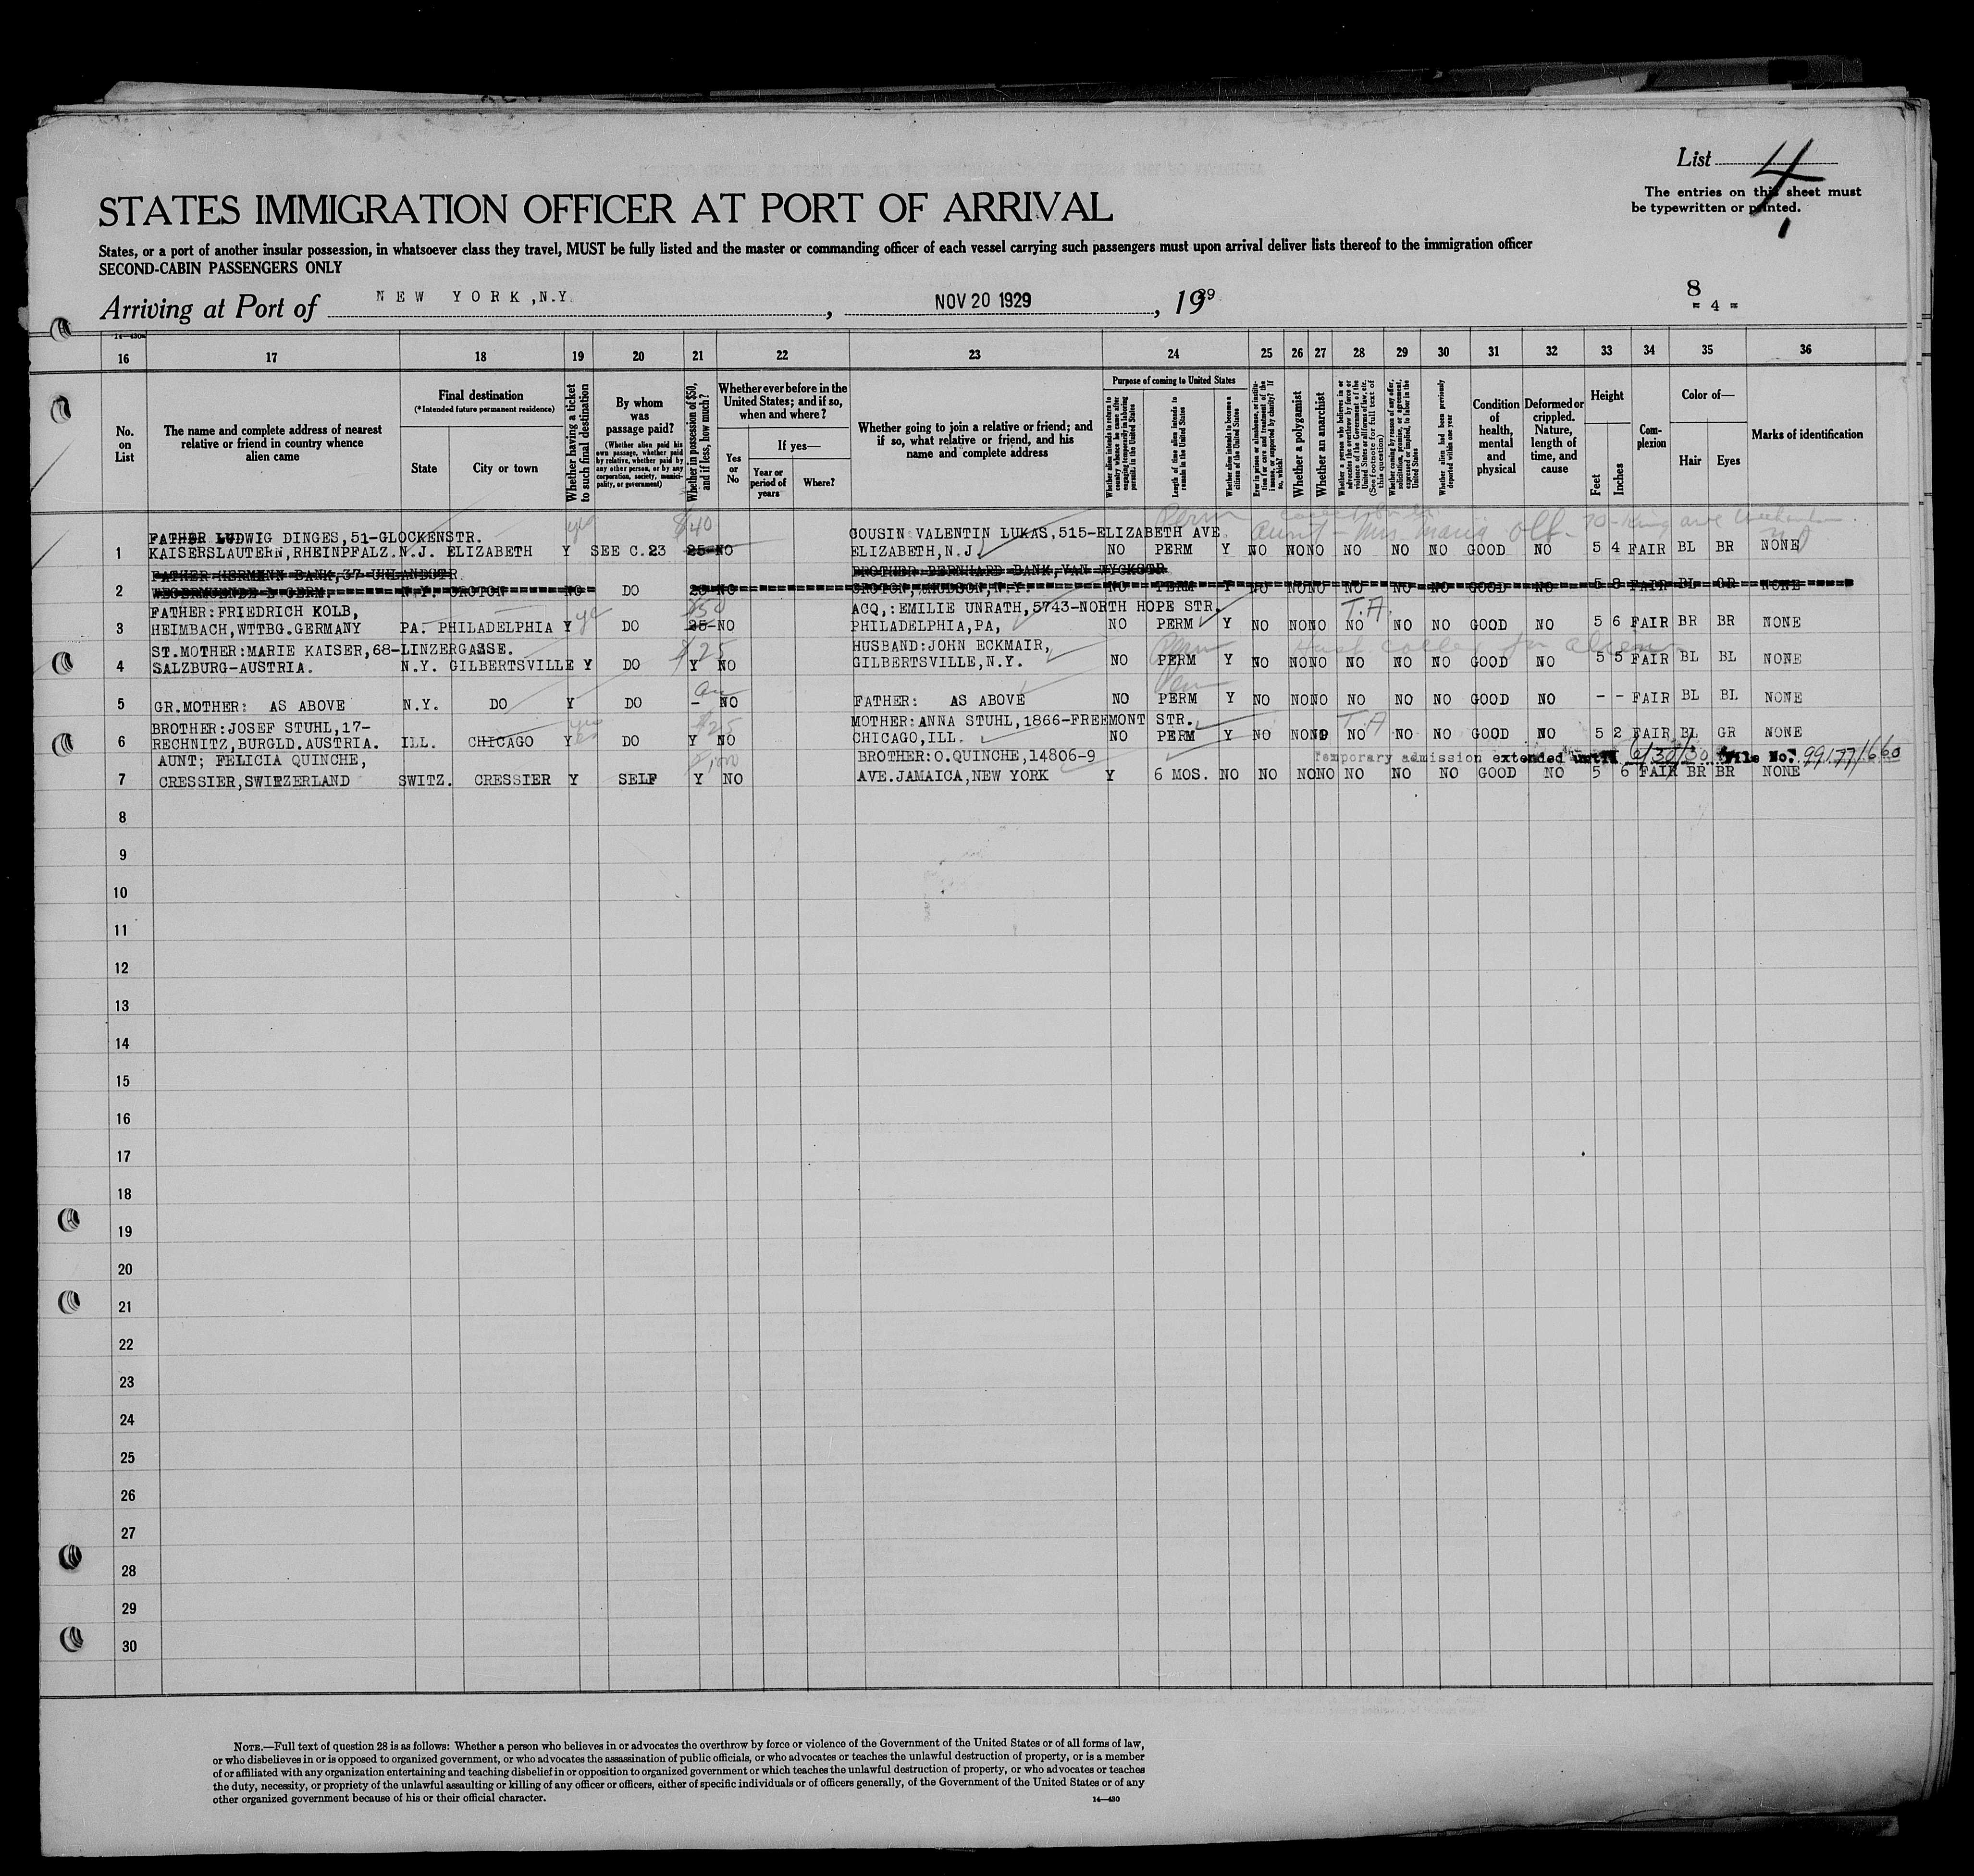 List 4
The entries on this sheet must
be typewritten or printed.
STATES IMMIGRATION OFFICER AT PORT OF ARRIVAL
States, or a port of another insular possession, in whatsoever class they travel, MUST be fully listed and the master or commanding officer of each vessel carrying such passengers must upon arrival deliver lists thereof to the immigration officer
SECOND-CABIN PASSENGERS ONLY
Arriving at Port of NEW YORK, N.Y. , NOV 20 1929 , 1929
8
= 4 =
14—430a
16 17 18 19 20 21 22 23 24 25 26 27 28 29 30 31 32 33 34 35 36
No. on List
The name and complete address of nearest relative or friend in country whence alien came
Final destination
(*Intended future permanent residence)
State
City or town
Whether having a ticket to such final destination
By whom was passage paid?
(Whether alien paid his own passage, whether paid by relative, whether paid by any other person, or by any corporation, society, municipality, or government)
Whether in possession of $50, and if less, how much?
Whether ever before in the United States; and if so, when and where?
Yes or No
If yes—
Year or period of years
Where?
Whether going to join a relative or friend; and if so, what relative or friend, and his name and complete address
Purpose of coming to United States
Whether alien intends to return to country whence he came after engaging temporarily in laboring pursuits in the United States
Length of time alien intends to remain in the United States
Whether alien intends to become a citizen of the United States
Ever in prison or almshouse, or institution for care and treatment of the insane, or supported by charity? If so, which?
Whether a polygamist
Whether an anarchist
Whether a person who believes in or advocates the overthrow by force or violence of the Government of the United States or all forms of law, etc. (See footnote for full text of this question)
Whether coming by reason of any offer, solicitation, promise, or agreement, expressed or implied, to labor in the United States
Whether alien had been previously deported within one year
Condition of health, mental and physical
Deformed or crippled. Nature, length of time, and cause
Height
Feet
Inches
Complexion
Color of—
Hair
Eyes
Marks of identification
FATHER LUDWIG DINGES,51-GLOCKENSTR. yes $40 COUSIN VALENTIN LUKAS,515-ELIZABETH AVE Perm Aunt - Mrs Maria
1 KAISERSLAUTERN,RHEINPFALZ. N.J. ELIZABETH Y SEE C.23 25 NO ELIZABETH,N.J. NO PERM Y NO NO NO NO NO NO GOOD NO 5 4 FAIR BL BR NONE
FATHER HERMINN BANK,37-UHLANDSTR BROTHER BERNHARD BANK,VAN WYCKSTR
2 N.Y. CROTON NO DO 25 NO CROTON,HUDSON,N.Y. NO PERM Y NO NO NO NO NO NO GOOD NO 5 8 FAIR BL GR NONE
FATHER:FRIEDRICH KOLB, ACQ,:EMILIE UNRATH,5743-NORTH HOPE STR. T.A.
3 HEIMBACH,WTTBG.GERMANY PA. PHILADELPHIA Y DO 25 NO PHILADELPHIA,PA, NO PERM Y NO NO NO NO NO NO GOOD NO 5 6 FAIR BR BR NONE
ST.MOTHER:MARIE KAISER,68-LINZERGASSE. $25 HUSBAND:JOHN ECKMAIR, Perm
4 SALZBURG-AUSTRIA. N.Y. GILBERTSVILLE Y DO Y NO GILBERTSVILLE,N.Y. NO PERM Y NO NO NO NO NO NO GOOD NO 5 5 FAIR BL BL NONE
5 GR.MOTHER: AS ABOVE N.Y. DO Y DO - NO FATHER: AS ABOVE NO PERM Y NO NO NO NO NO NO GOOD NO - - FAIR BL BL NONE
BROTHER:JOSEF STUHL,17- yes $25 MOTHER:ANNA STUHL,1866-FREEMONT STR. T.A
6 RECHNITZ,BURGLD.AUSTRIA. ILL. CHICAGO Y DO Y NO CHICAGO,ILL. NO PERM Y NO NO NO NO NO NO GOOD NO 5 2 FAIR BL GR NONE
AUNT; FELICIA QUINCHE, BROTHER:O.QUINCHE,14806-9 Temporary admission extended until 6/30/30 File No. 99177/660
7 CRESSIER,SWITZERLAND SWITZ. CRESSIER Y SELF Y NO AVE.JAMAICA,NEW YORK Y 6 MOS. NO NO NO NO NO NO NO GOOD NO 5 6 FAIR BR BR NONE
8
9
10
11
12
13
14
15
16
17
18
19
20
21
22
23
24
25
26
27
28
29
30
NOTE.—Full text of question 28 is as follows: Whether a person who believes in or advocates the overthrow by force or violence of the Government of the United States or of all forms of law,
or who disbelieves in or is opposed to organized government, or who advocates the assassination of public officials, or who advocates or teaches the unlawful destruction of property, or is a member
of or affiliated with any organization entertaining and teaching disbelief in or opposition to organized government or which teaches the unlawful destruction of property, or who advocates or teaches
the duty, necessity, or propriety of the unlawful assaulting or killing of any officer or officers, either of specific individuals or of officers generally, of the Government of the United States or of any
other organized government because of his or their official character.
14—430